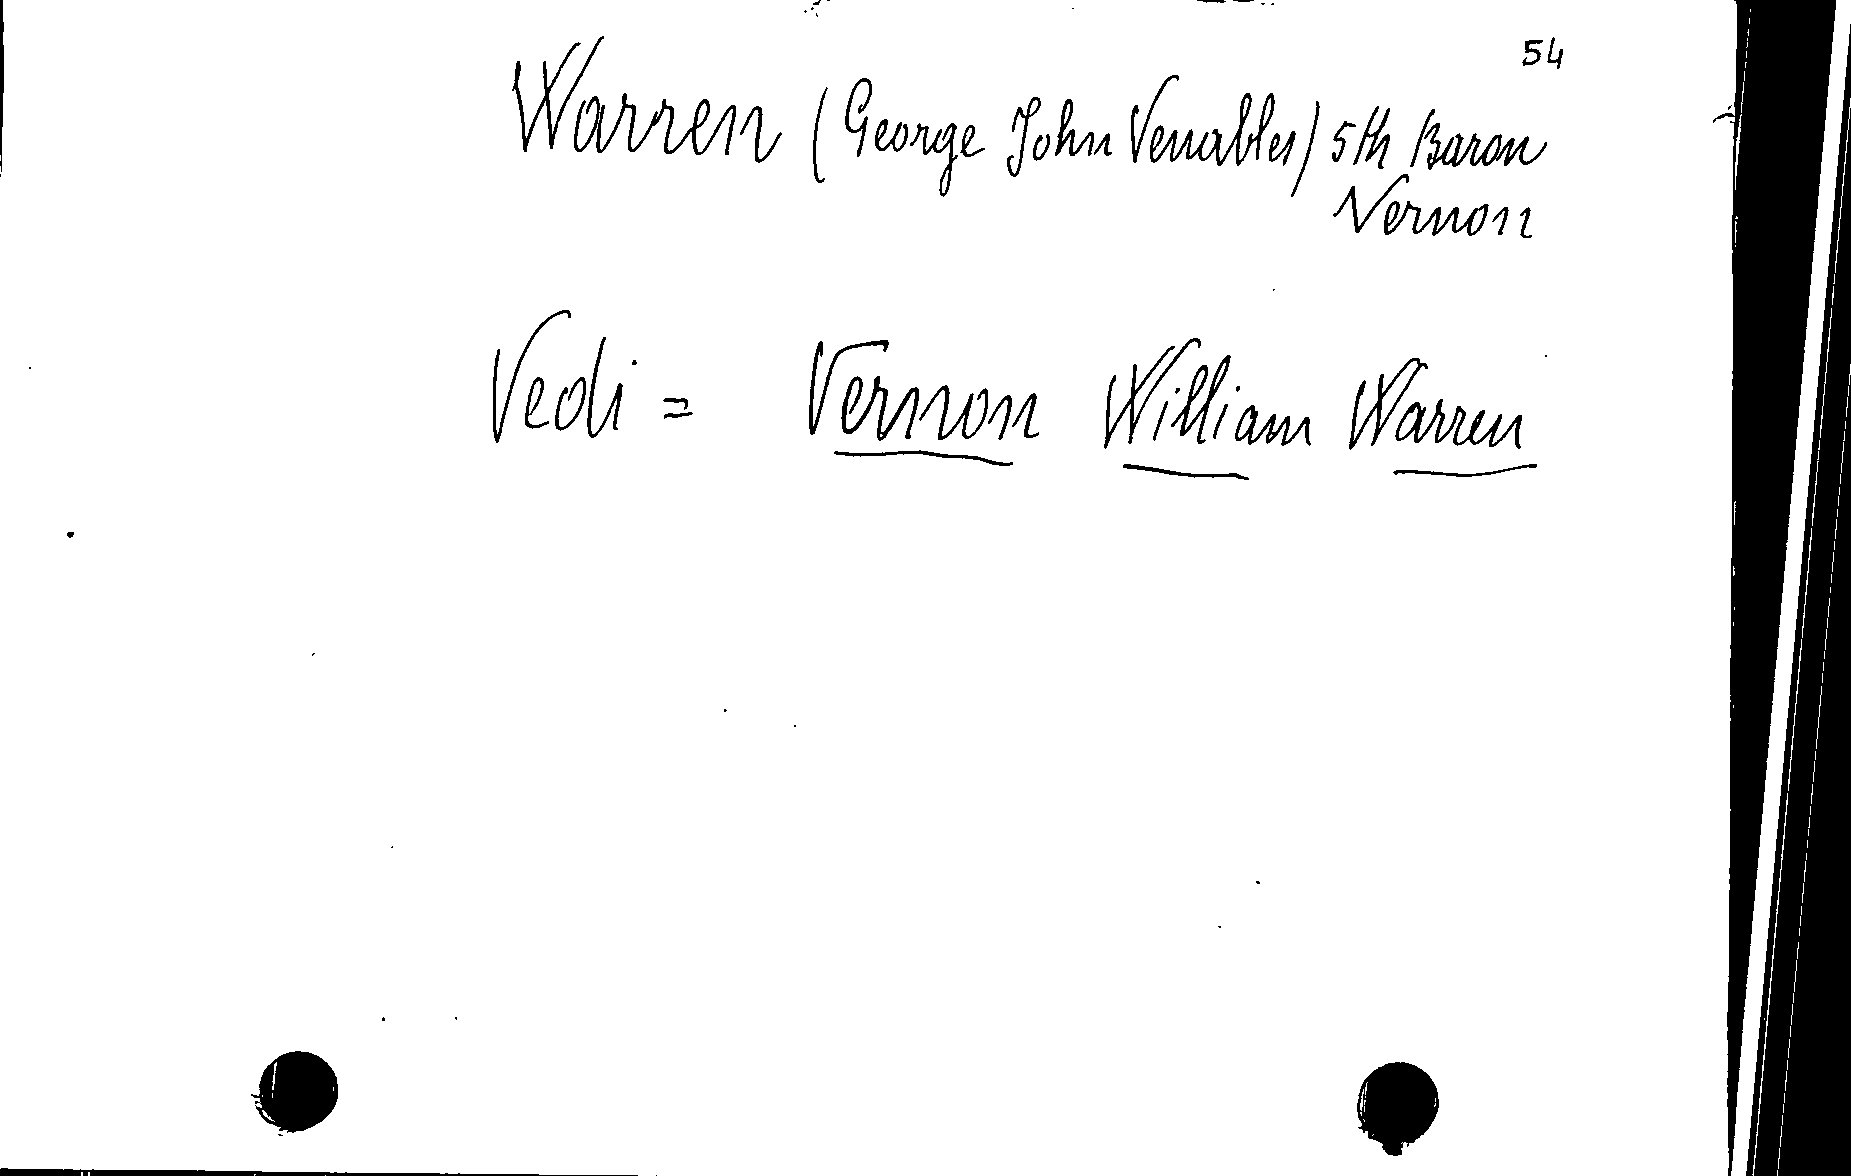 54
Warren (George John Venables) 5th Baron
Vernon
Vedi = Vernon William Warren